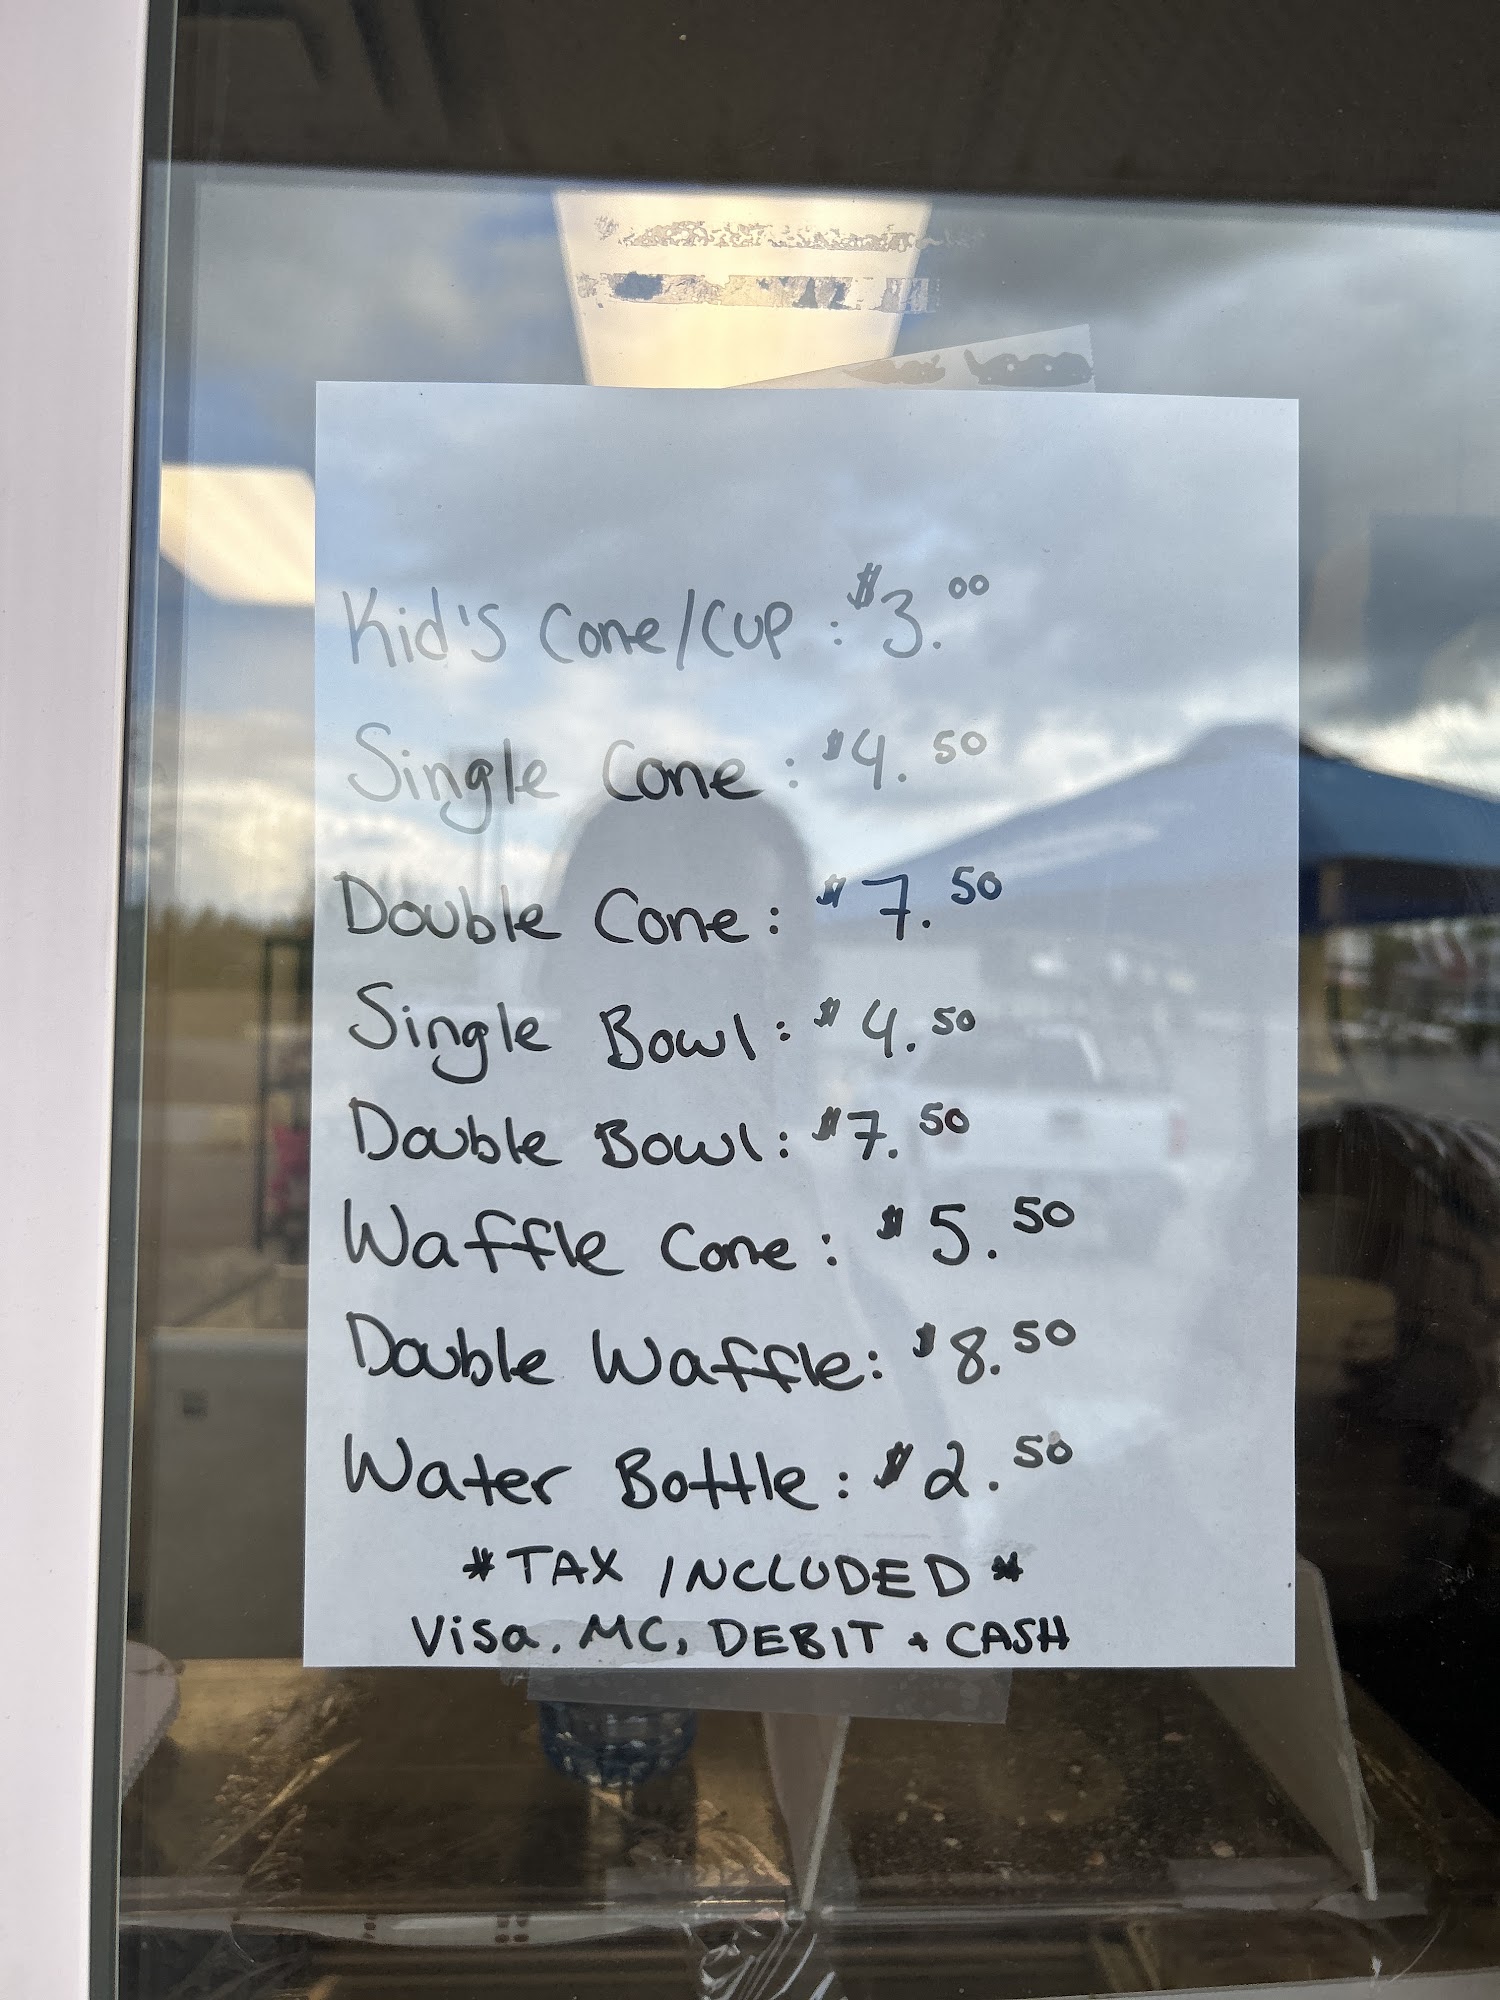 Kid's Cone/Cup : $3.00
Single Cone : $4.50
Double Cone : $7.50
Single Bowl : $4.50
Double Bowl : $7.50
Waffle Cone : $5.50
Double Waffle : $8.50
Water Bottle : $2.50
*TAX INCLUDED*
Visa. MC, DEBIT + CASH